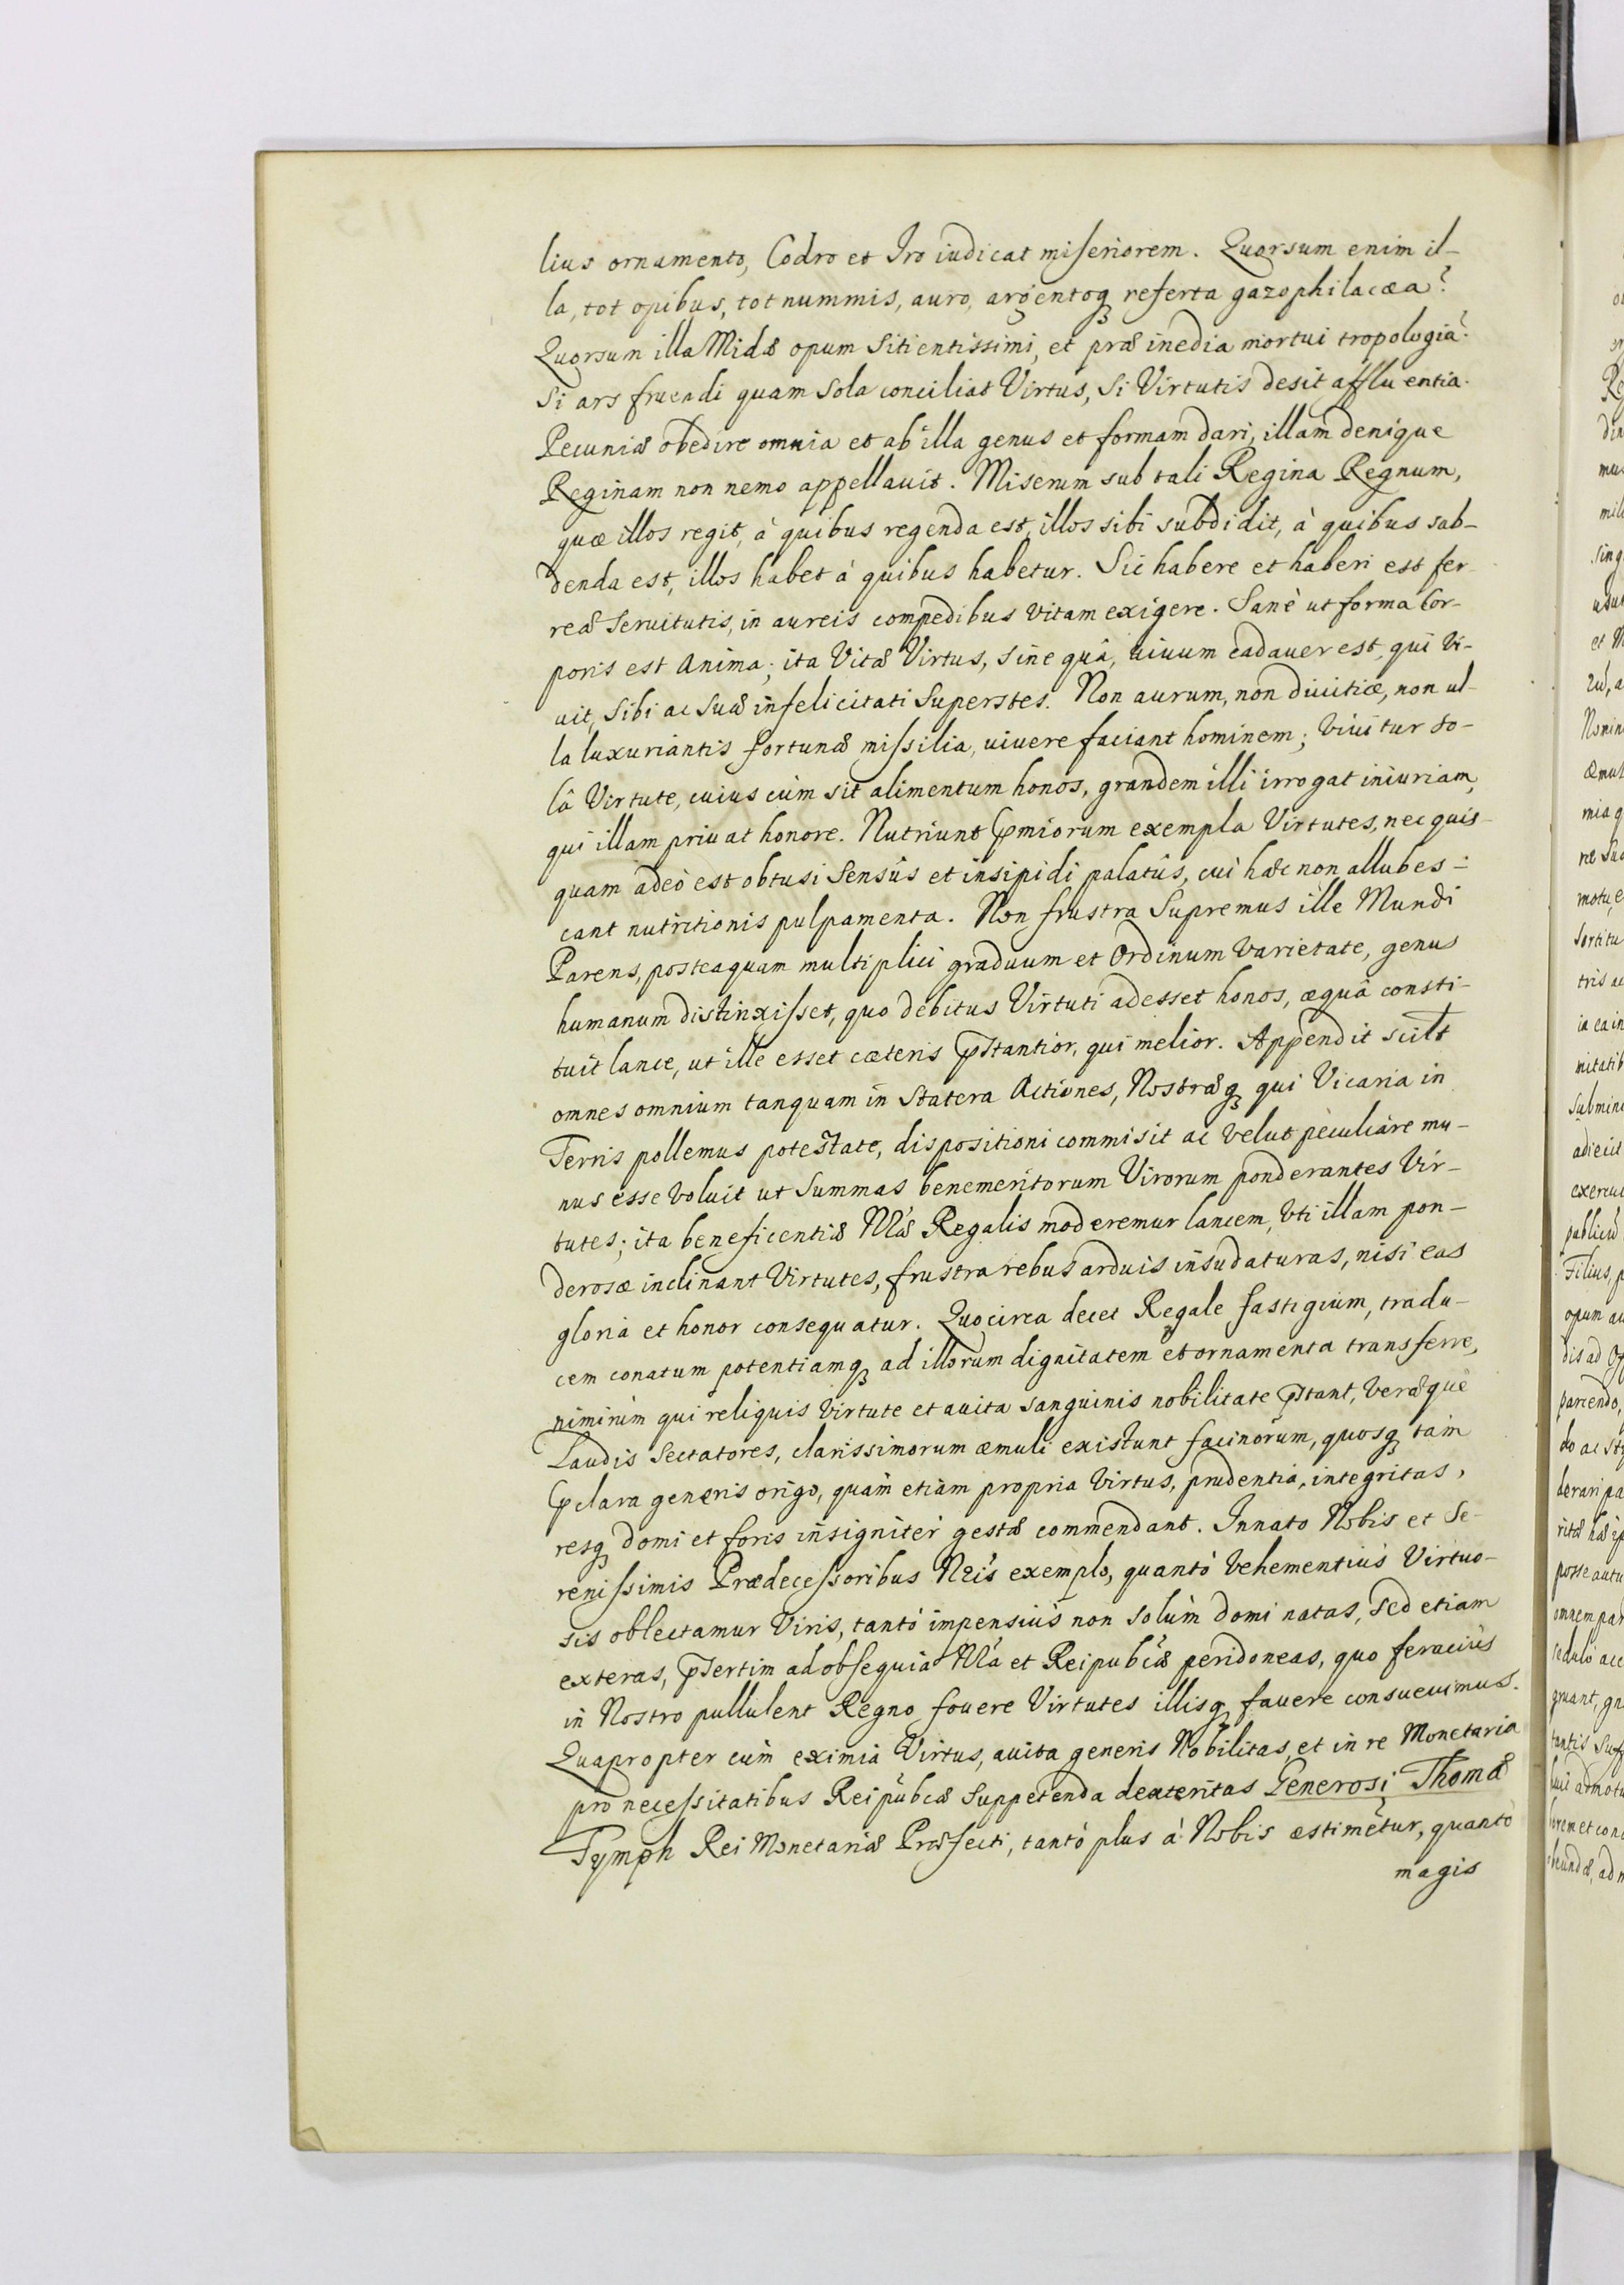 lius ornamento, Codro et Iro iudicat miseriorem. Quorsum enim il-
la, tot opibus, tot nummis, auro, argentoq̃ referta gazophilacæa?
Quorsum illa Midæ opum sitientissimi, et præ inedia mortui tropologia?
Si ars fruendi quam sola conciliat Virtus, si Virtutis desit affluentia.
Pecuniæ obedire omnia et ab illa genus et formam dari, illam denique
Reginam non nemo appellauit. Miserum sub tali Regina Regnum,
quæ illos regit, à quibus regenda est, illos sibi subdidit, à quibus sub-
denda est, illos habet à quibus habetur. Sic habere et haberi est fer-
reæ seruitutis, in aureis compedibus vitam exigere. Sanè ut forma Cor-
poris est Anima; ita Vitæ Virtus, sine quâ, uiuum cadauer est, qui vi-
uit, sibi ac suæ infelicitati superstes. Non aurum, non diuitiæ, non ul-
la luxuriantis fortunæ missilia, uiuere faciant hominem; viuitur so-
lâ Virtute, cuius cùm sit alimentum honos, grandem illi irrogat iniuriam,
qui illam priuat honore. Nutriunt p̃miorum exempla Virtutes, nec quis-
quam adeò est obtusi sensûs et insipidi palatûs, cui hæc non allubes-
cant nutritionis pulpamenta. Non frustra Supremus ille Mundi
Parens, posteaquam multiplici graduum et Ordinum varietate, genus
humanum distinxisset, quo debitus Virtuti adesset honos, æquâ consti-
tuit lance, ut ille esset cæteris p̃stantior, qui melior. Appendit scilt
omnes omnium tanquam in statera Actiones, Nostræq̃ qui Vicaria in
Terris pollemus potestate, dispositioni commisit ac velut peculiare mu-
nus esse voluit ut summas benemeritorum Virorum ponderantes Vir-
tutes; ita beneficentiæ Nr̃æ Regalis moderemur lancem, vti illam pon-
derosæ inclinant Virtutes, frustra rebus arduis insudaturas, nisi eas
gloria et honor consequatur. Quocirca decet Regale fastigium, tradu-
cem conatum potentiamq̃ ad illorum dignitatem et ornamenta transferre,
nimirùm qui reliquis virtute et auita sanguinis nobilitate p̃stant, veræquè
Laudis sectatores, clarissimorum æmuli existunt facinorum, quosq̃ tam
p̃clara generis origo, quàm etiam propria virtus, prudentia, integritas,
resq̃ domi et foris insigniter gestæ commendant. Innato Nobis et Se-
renissimis Prædecessoribus Nr̃is exemplo, quantò vehementiùs Virtuo-
sis oblectamur Viris, tantò impensiùs non solùm domi natas, sed etiam
exteras, p̃sertim ad obsequia Nr̃a et Reipubcæ peridoneas, quo feraciùs
in Nostro pullulent Regno fouere Virtutes illisq̃ fauere consueuimus.
Quapropter cùm eximia Virtus, auita generis Nobilitas, et in re Monetaria
pro necessitatibus Reipubcæ suppetenda dexteritas Generosi Thomæ
Tymph Rei Monetariæ Præfecti, tantò plus à Nobis æstimetur, quantò
magis